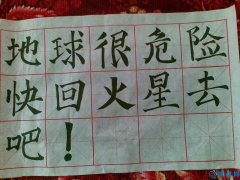 地球很危险
快回火星去
吧！